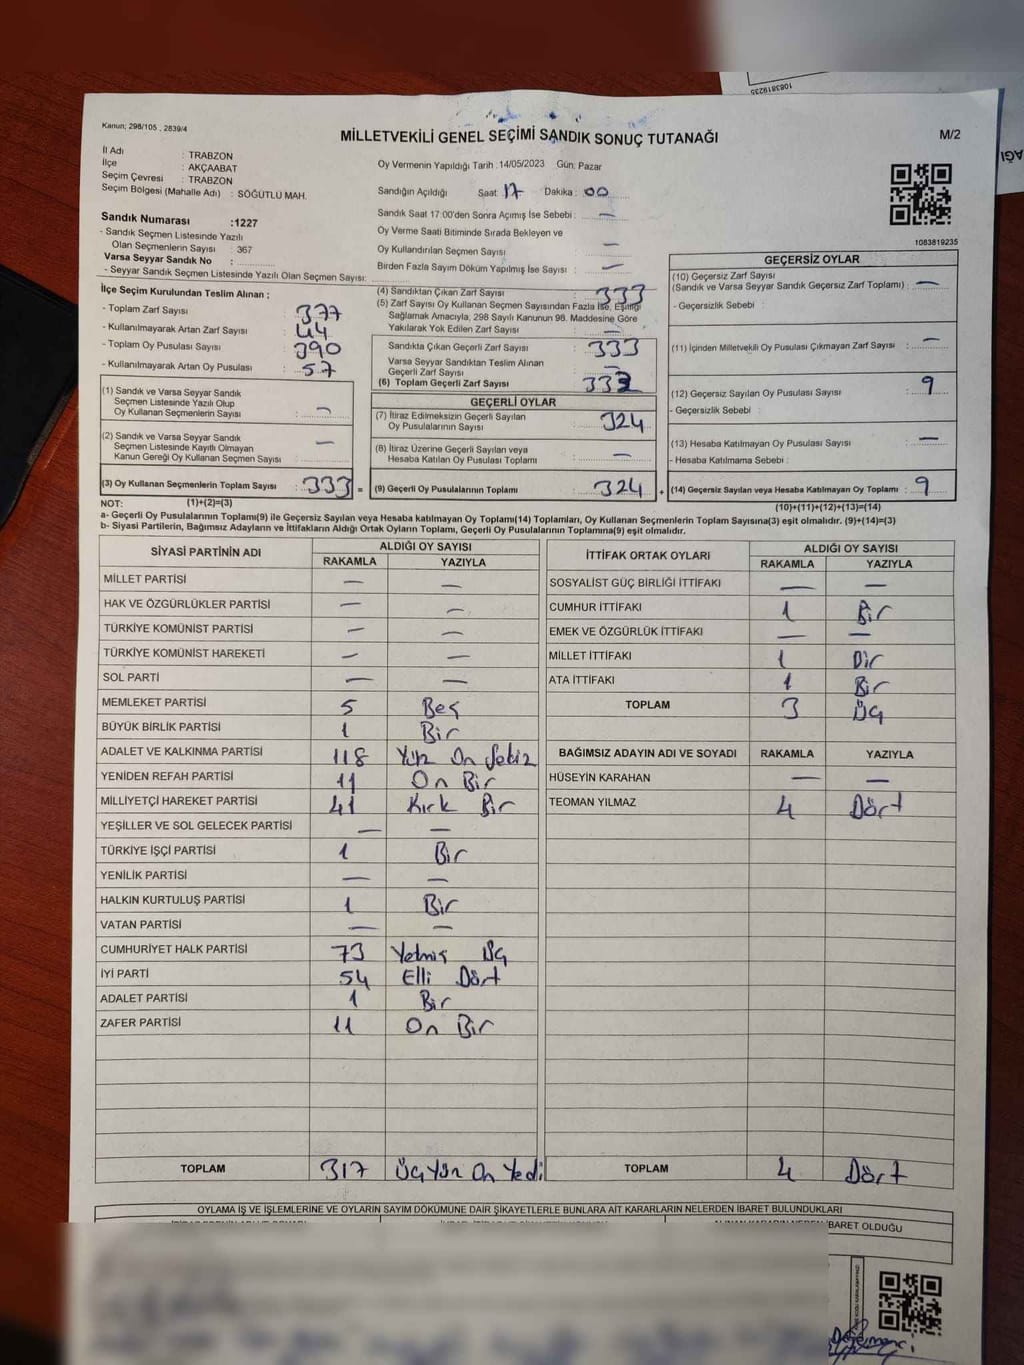 1083819235
Kanun; 298/105 , 2839/4
MİLLETVEKİLİ GENEL SEÇİMİ SANDIK SONUÇ TUTANAĞI
M/2
İl Adı : TRABZON
İlçe : AKÇAABAT
Seçim Çevresi : TRABZON
Seçim Bölgesi (Mahalle Adı) : SÖĞÜTLÜ MAH.
Sandık Numarası :1227
- Sandık Seçmen Listesinde Yazılı
Olan Seçmenlerin Sayısı : 367
Varsa Seyyar Sandık No :
- Seyyar Sandık Seçmen Listesinde Yazılı Olan Seçmen Sayısı:
Oy Vermenin Yapıldığı Tarih :14/05/2023 Gün: Pazar
Sandığın Açıldığı Saat : 17 Dakika : 00
Sandık Saat 17:00'den Sonra Açımış İse Sebebi : —
Oy Verme Saati Bitiminde Sırada Bekleyen ve
Oy Kullandırılan Seçmen Sayısı : —
Birden Fazla Sayım Döküm Yapılmış İse Sayısı : —
1083819235
İlçe Seçim Kurulundan Teslim Alınan ;
- Toplam Zarf Sayısı : 377
- Kullanılmayarak Artan Zarf Sayısı : 44
- Toplam Oy Pusulası Sayısı : 390
- Kullanılmayarak Artan Oy Pusulası : 57
(1) Sandık ve Varsa Seyyar Sandık
Seçmen Listesinde Yazılı Olup
Oy Kullanan Seçmenlerin Sayısı : —
(2) Sandık ve Varsa Seyyar Sandık
Seçmen Listesinde Kayıtlı Olmayan
Kanun Gereği Oy Kullanan Seçmen Sayısı : —
(3) Oy Kullanan Seçmenlerin Toplam Sayısı : 333 =
(4) Sandıktan Çıkan Zarf Sayısı : 333
(5) Zarf Sayısı Oy Kullanan Seçmen Sayısından Fazla İse, Eşitliği
Sağlamak Amacıyla, 298 Sayılı Kanunun 98. Maddesine Göre
Yakılarak Yok Edilen Zarf Sayısı : —
Sandıkta Çıkan Geçerli Zarf Sayısı : 333
Varsa Seyyar Sandıktan Teslim Alınan
Geçerli Zarf Sayısı : —
(6) Toplam Geçerli Zarf Sayısı : 333
GEÇERLİ OYLAR
(7) İtiraz Edilmeksizin Geçerli Sayılan
Oy Pusulalarının Sayısı : 324
(8) İtiraz Üzerine Geçerli Sayılan veya
Hesaba Katılan Oy Pusulası Toplamı : —
(9) Geçerli Oy Pusulalarının Toplamı : 324 +
GEÇERSİZ OYLAR
(10) Geçersiz Zarf Sayısı
(Sandık ve Varsa Seyyar Sandık Geçersiz Zarf Toplamı) : —
- Geçersizlik Sebebi :
(11) İçinden Milletvekili Oy Pusulası Çıkmayan Zarf Sayısı : —
(12) Geçersiz Sayılan Oy Pusulası Sayısı : 9
- Geçersizlik Sebebi :
(13) Hesaba Katılmayan Oy Pusulası Sayısı : —
- Hesaba Katılmama Sebebi :
(14) Geçersiz Sayılan veya Hesaba Katılmayan Oy Toplamı : 9
NOT: (1)+(2)=(3)
(10)+(11)+(12)+(13)=(14)
a- Geçerli Oy Pusulalarının Toplamı(9) ile Geçersiz Sayılan veya Hesaba katılmayan Oy Toplamı(14) Toplamları, Oy Kullanan Seçmenlerin Toplam Sayısına(3) eşit olmalıdır. (9)+(14)=(3)
b- Siyasi Partilerin, Bağımsız Adayların ve İttifakların Aldığı Ortak Oyların Toplamı, Geçerli Oy Pusulalarının Toplamına(9) eşit olmalıdır.
SİYASİ PARTİNİN ADI ALDIĞI OY SAYISI
RAKAMLA YAZIYLA
MİLLET PARTİSİ — —
HAK VE ÖZGÜRLÜKLER PARTİSİ — —
TÜRKİYE KOMÜNİST PARTİSİ — —
TÜRKİYE KOMÜNİST HAREKETİ — —
SOL PARTİ — —
MEMLEKET PARTİSİ 5 Beş
BÜYÜK BİRLİK PARTİSİ 1 Bir
ADALET VE KALKINMA PARTİSİ 118 Yüz On Sekiz
YENİDEN REFAH PARTİSİ 11 On Bir
MİLLİYETÇİ HAREKET PARTİSİ 41 Kırk Bir
YEŞİLLER VE SOL GELECEK PARTİSİ — —
TÜRKİYE İŞÇİ PARTİSİ 1 Bir
YENİLİK PARTİSİ — —
HALKIN KURTULUŞ PARTİSİ 1 Bir
VATAN PARTİSİ — —
CUMHURİYET HALK PARTİSİ 73 Yetmiş Üç
İYİ PARTİ 54 Elli Dört
ADALET PARTİSİ 1 Bir
ZAFER PARTİSİ 11 On Bir
TOPLAM 317 Üçyüz On Yedi
İTTİFAK ORTAK OYLARI ALDIĞI OY SAYISI
RAKAMLA YAZIYLA
SOSYALİST GÜÇ BİRLİĞİ İTTİFAKI — —
CUMHUR İTTİFAKI 1 Bir
EMEK VE ÖZGÜRLÜK İTTİFAKI — —
MİLLET İTTİFAKI 1 Bir
ATA İTTİFAKI 1 Bir
TOPLAM 3 Üç
BAĞIMSIZ ADAYIN ADI VE SOYADI RAKAMLA YAZIYLA
HÜSEYİN KARAHAN — —
TEOMAN YILMAZ 4 Dört
TOPLAM 4 Dört
OYLAMA İŞ VE İŞLEMLERİNE VE OYLARIN SAYIM DÖKÜMÜNE DAİR ŞİKAYETLERLE BUNLARA AİT KARARLARIN NELERDEN İBARET BULUNDUKLARI
İBARET OLDUĞU